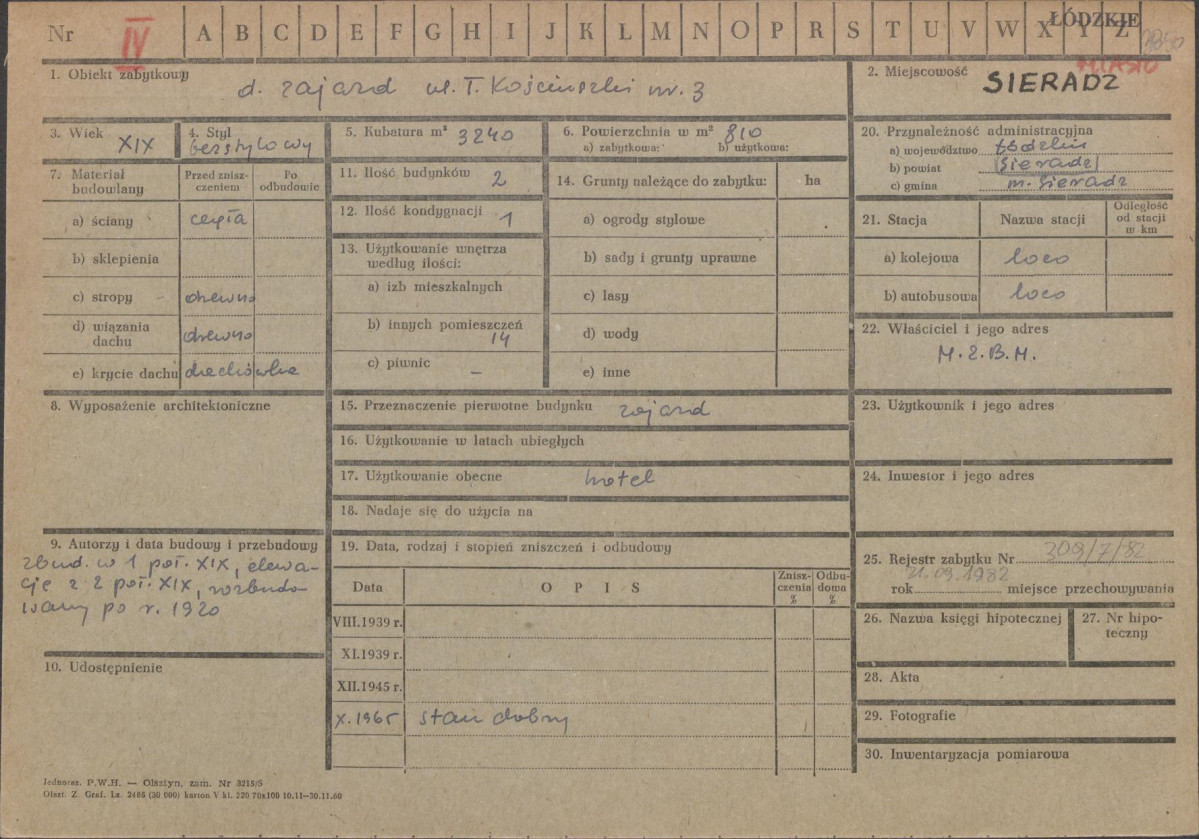 Nr IV A B C D E F G H I J K L M N O P R S T U V W X Y Z
ŁÓDZKIE
MIASTO
1. Obiekt zabytkowy
d. zajazd ul. T. Kościuszki nr. 3
2. Miejscowość
SIERADZ
3. Wiek XIX
4. Styl bezstylowy
5. Kubatura m³ 3240
6. Powierzchnia w m² 810
a) zabytkowa: b) użytkowa:
7. Materiał budowlany
Przed zniszczeniem
Po odbudowie
a) ściany cegła
b) sklepienia
c) stropy drewno
d) wiązania dachu drewno
e) krycie dachu dachówka
8. Wyposażenie architektoniczne
9. Autorzy i data budowy i przebudowy
zbud. w 1 poł. XIX, elewa-
cje z 2 poł. XIX, rozbudo
wany po r. 1920
10. Udostępnienie
11. Ilość budynków 2
12. Ilość kondygnacji 1
13. Użytkowanie wnętrza
według ilości:
a) izb mieszkalnych
b) innych pomieszczeń
14
c) piwnic –
14. Grunty należące do zabytku: ha
a) ogrody stylowe
b) sady i grunty uprawne
c) lasy
d) wody
e) inne
15. Przeznaczenie pierwotne budynku zajazd
16. Użytkowanie w latach ubiegłych
17. Użytkowanie obecne hotel
18. Nadaje się do użycia na
19. Data, rodzaj i stopień zniszczeń i odbudowy
Data
OPIS
Znisz-
czenia
%
Odbu-
dowa
%
VIII.1939 r.
XI.1939 r.
XII.1945 r.
X.1965 stan dobry
20. Przynależność administracyjna
a) województwo łódzkie
b) powiat Sieradz
c) gmina m. Sieradz
21. Stacja
Nazwa stacji
Odległość
od stacji
w km
a) kolejowa loco
b) autobusowa loco
22. Właściciel i jego adres
M.Z.B.M.
23. Użytkownik i jego adres
24. Inwestor i jego adres
25. Rejestr zabytku Nr 309/7/82
21.09.1982
rok miejsce przechowywania
26. Nazwa księgi hipotecznej
27. Nr hipo-
teczny
28. Akta
29. Fotografie
30. Inwentaryzacja pomiarowa
Jednoraz. P.W.H. — Olsztyn, zam. Nr 3215/S
Olszt. Z. Graf. Lz. 2486 (30 000) karton V kl. 220 70x100 10.11—30.11.60